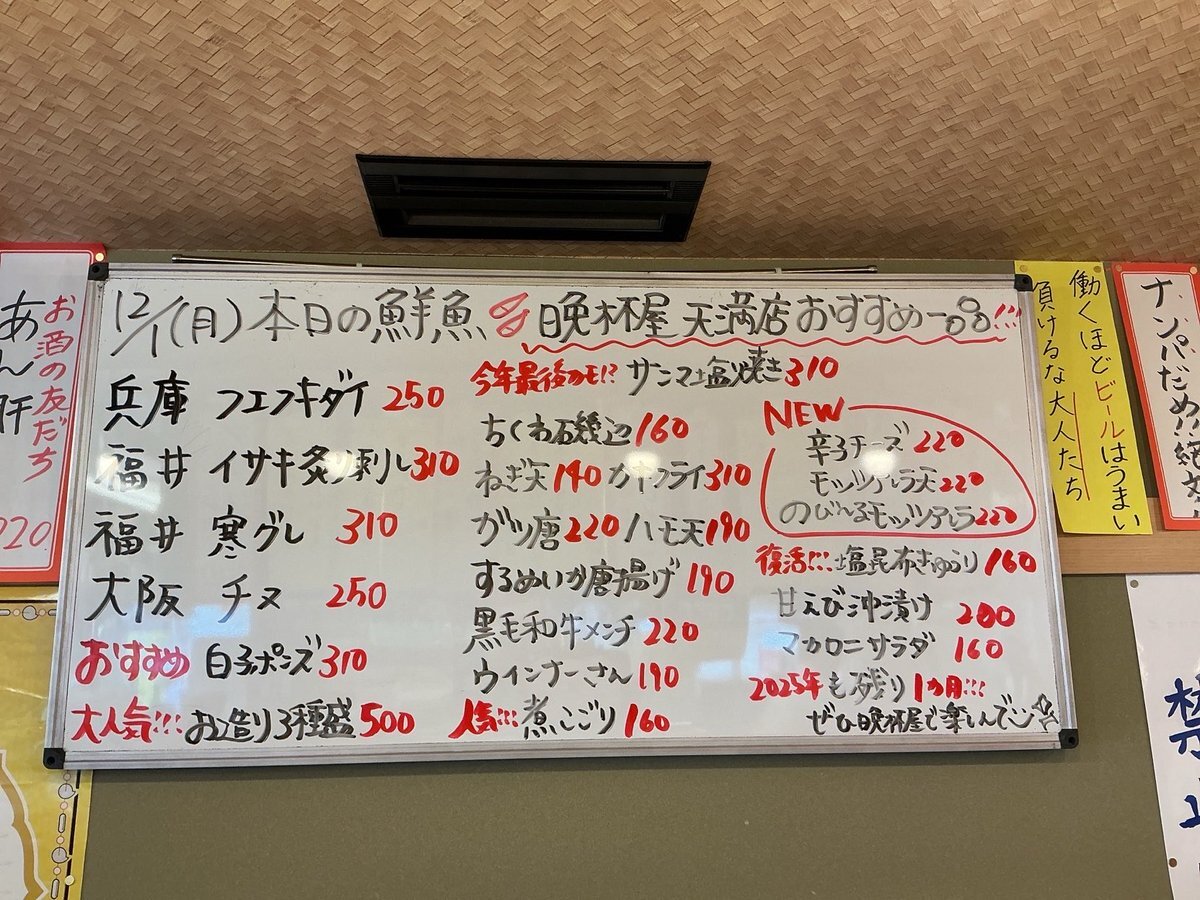 12/1(月)本日の鮮魚
晩杯屋 天満店おすすめ一品!!!
兵庫 フエフキダイ 250
福井 イサキ炙り刺し310
福井 寒グレ 310
大阪 チヌ 250
おすすめ 白子ポンズ310
大人気!!! お造り3種盛500
今年最後カモ!? サンマ塩焼き310
ちくわ磯辺 160
ねぎ天140 カキフライ310
ガツ唐220 ハモ天190
するめいか唐揚げ 190
黒毛和牛メンチ 220
ウインナーさん190
人気!!! 煮こごり 160
NEW
辛子チーズ 220
モッツァレラ天220
のび〜るモッツァレラ220
復活!!! 塩昆布きゅうり 160
甘えび沖漬け 200
マカロニサラダ 160
2025年も残り1カ月!!!
ぜひ晩杯屋で楽しんで
お酒の友だち
あん肝
220
働くほどビールはうまい
負けるな大人たち
ナンパだめ!!絶対
禁止